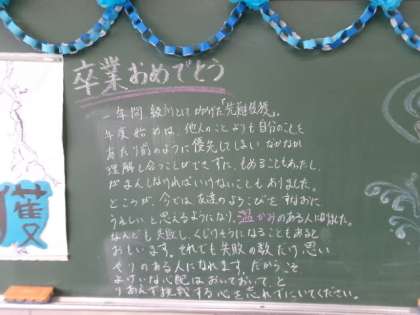 卒業おめでとう
一年間 級訓としてかかげた「先憂後獲」。
年度始めは、他人のことよりも自分のことを
あたり前のように優先してしまい なかなか
理解し合うことができずに、もめることもあったし、
がまんしなければいけないこともありました。
ところが、今では友達のよろこびを すなおに
うれしいと思えるようになり、温かみのある人になれました。
なんども失敗し、くじけそうになることもあると
おもいます。それでも失敗の数だけ、思い
やりのある人になれます。だからこそ
よけいな心配はおいておいて、と
りあえず挑戦する心を忘れずにいてください。
獲